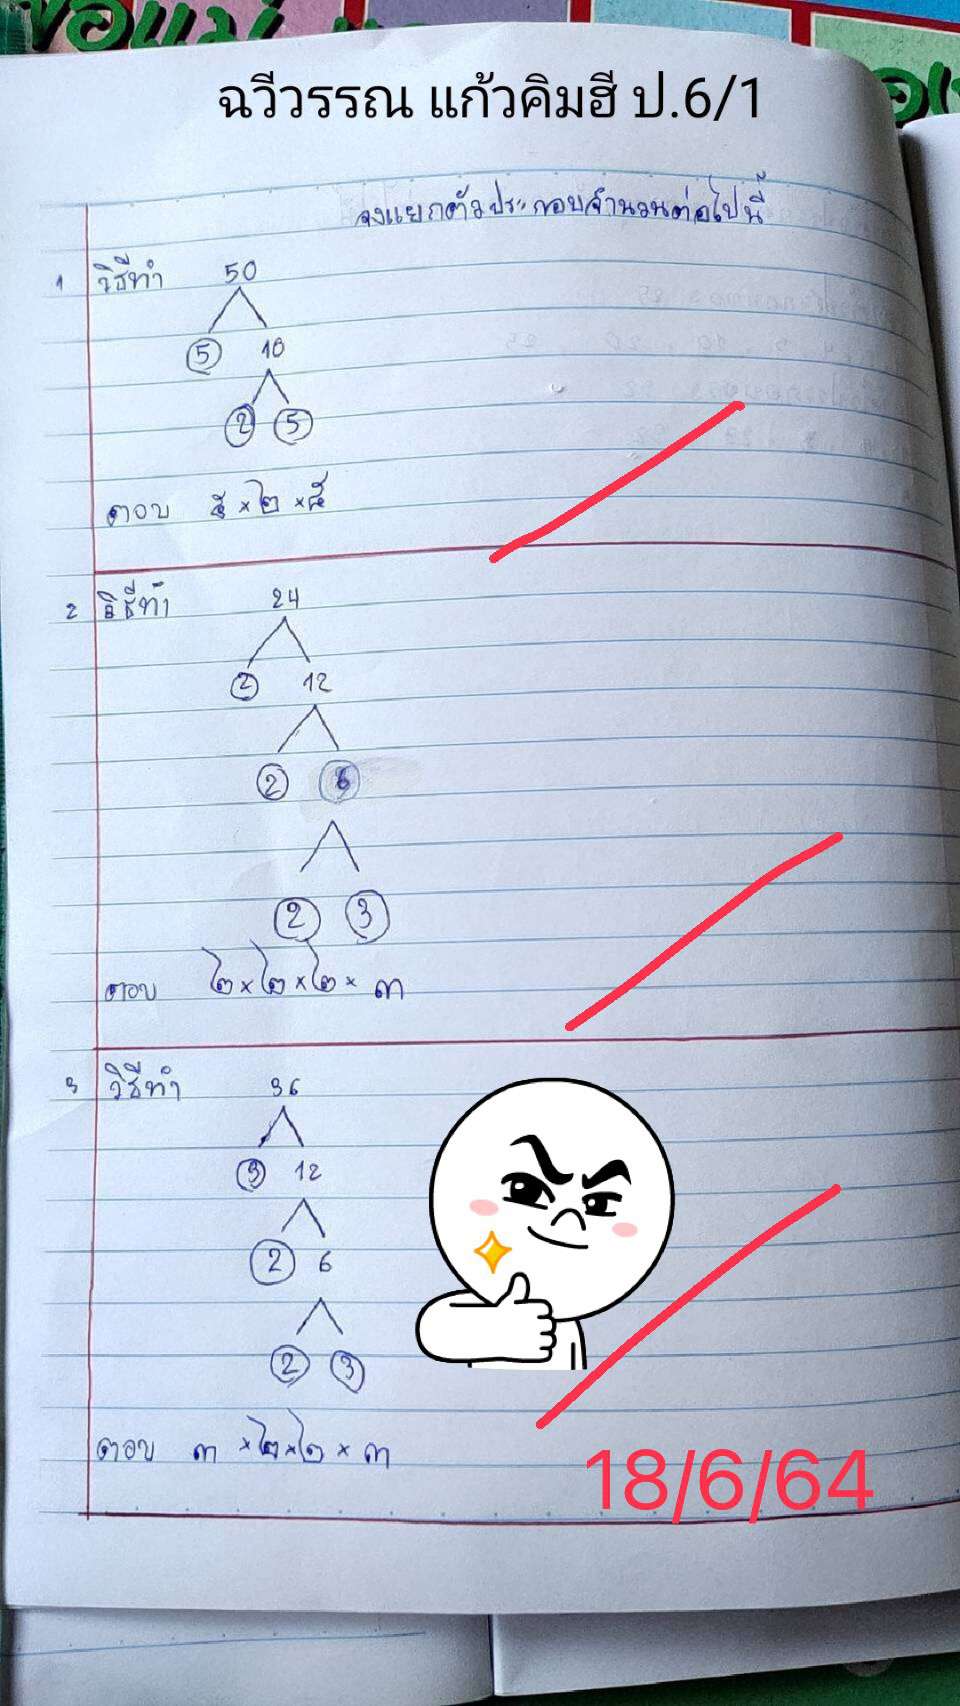 ขอแม่
ฉวีวรรณ แก้วคิมฮี ป.6/1
จงแยกตัวประกอบจำนวนต่อไปนี้
1 วิธีทำ 50
5 10
2 5
ตอบ ๕ × ๒ × ๕
2 วิธีทำ 24
2 12
2 6
2 3
ตอบ ๒ × ๒ × ๒ × ๓
3 วิธีทำ 36
3 12
2 6
2 3
ตอบ ๓ × ๒ × ๒ × ๓
18/6/64